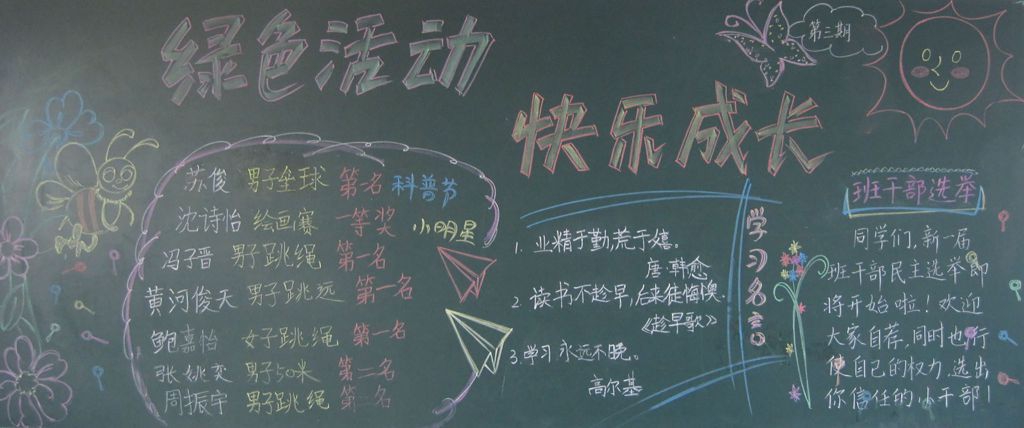 绿色活动
第三期
快乐成长
苏俊 男子垒球 第一名 科普节
沈诗怡 绘画赛 一等奖 小明星
冯子晋 男子跳绳 第一名
黄河俊天 男子跳远 第一名
鲍嘉怡 女子跳绳 第一名
张姚奕 男子50米 第二名
周振宇 男子跳绳 第二名
1. 业精于勤,荒于嬉。
唐·韩愈
2. 读书不趁早,后来徒悔懊。
《趁早歌》
3.学习永远不晚。
高尔基
学习名言
班干部选举
同学们,新一届
班干部民主选举即
将开始啦!欢迎
大家自荐,同时也行
使自己的权力,选出
你信任的小干部!